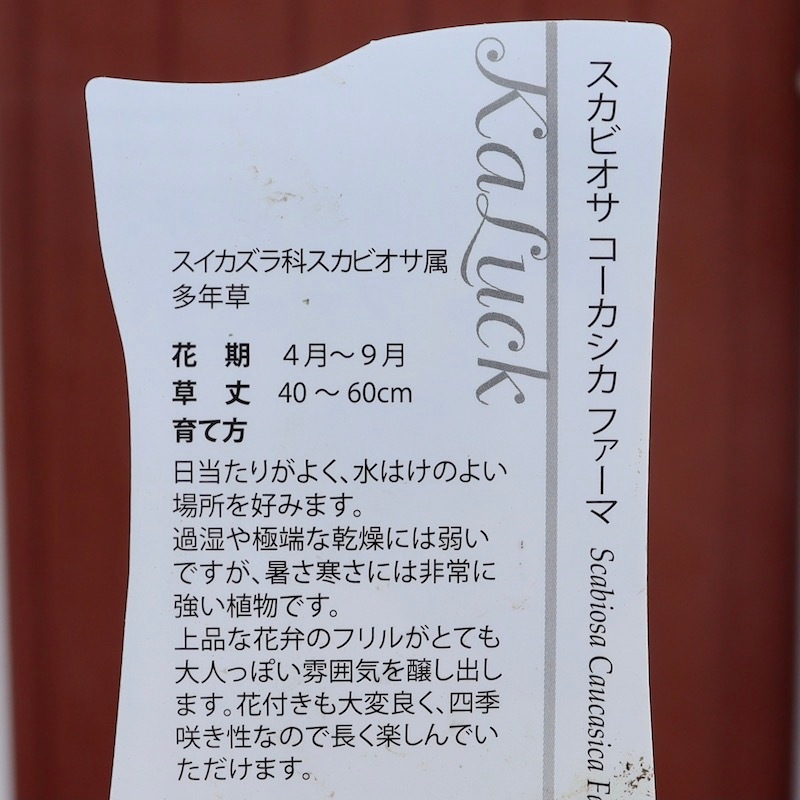 スカビオサ コーカシカ ファーマ Scabiosa Caucasica
KaLuck
スイカズラ科スカビオサ属
多年草
花　期　４月～９月
草　丈　40 ～ 60cm
育て方
日当たりがよく、水はけのよい
場所を好みます。
過湿や極端な乾燥には弱い
ですが、暑さ寒さには非常に
強い植物です。
上品な花弁のフリルがとても
大人っぽい雰囲気を醸し出し
ます。花付きも大変良く、四季
咲き性なので長く楽しんでい
ただけます。